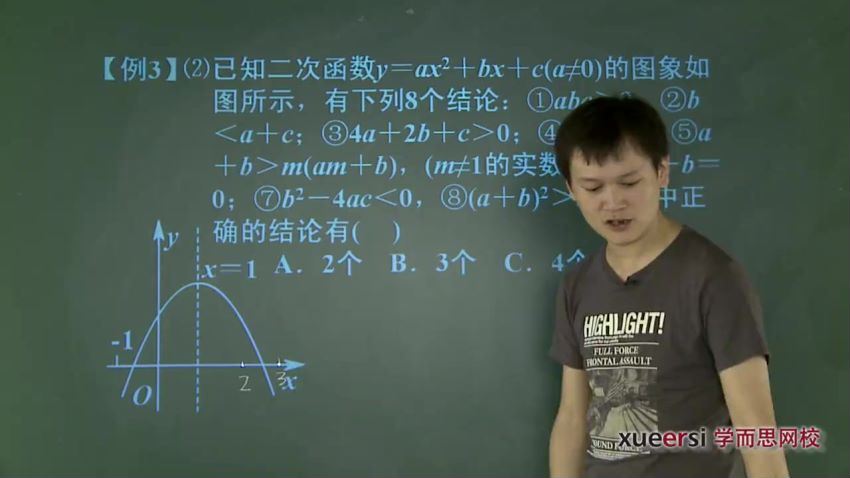 【例3】⑵已知二次函数y＝ax²＋bx＋c(a≠0)的图象如
图所示，有下列8个结论：①abc ②b
＜a＋c；③4a＋2b＋c＞0； ⑤a
＋b＞m(am＋b)，(m≠1的实数 b＝
0；⑦b²－4ac＜0，⑧(a＋b)²＞ 中正
确的结论有( )
A．2个 B．3个 C．4个
y
x＝1
-1
O
2
3
x
HIGHLIGHT!
FULL FORCE
FRONTAL ASSAULT
xueersi 学而思网校